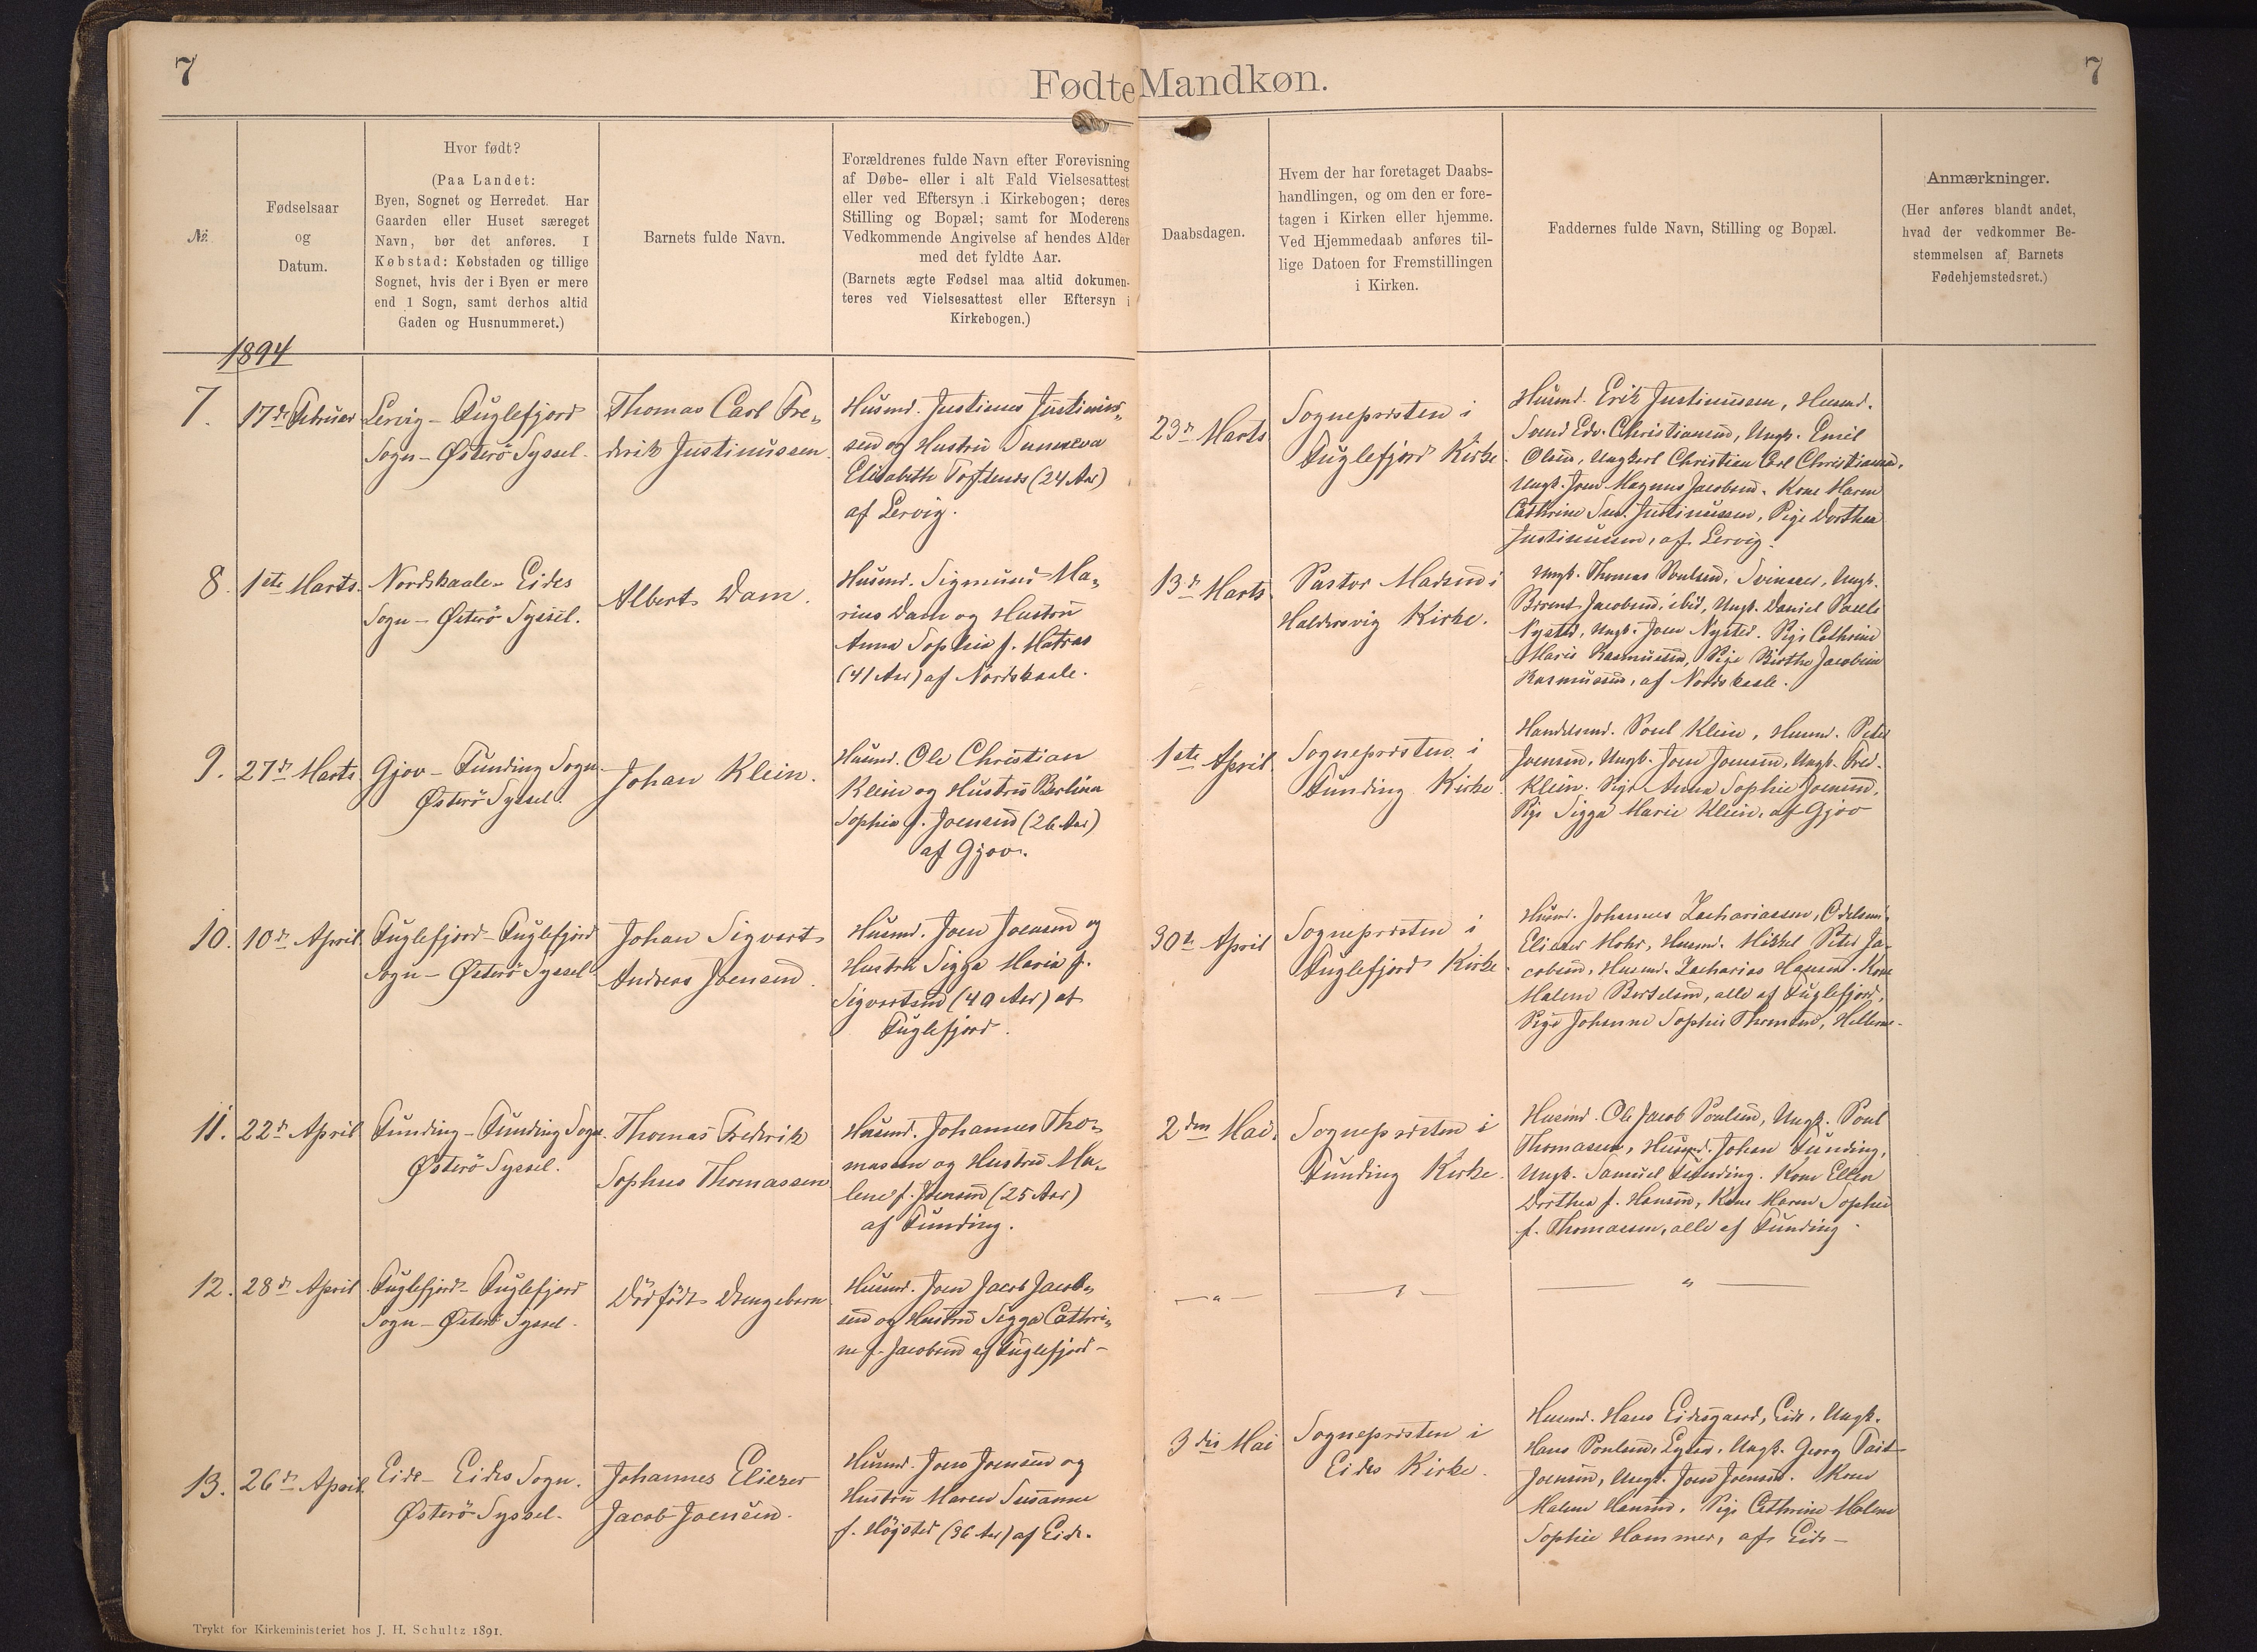 7
Fødte Mandkøn.
7
№
Fødselsaar
og
Datum.
Hvor født?
(Paa Landet:
Byen, Sognet og Herredet. Har
Gaarden eller Huset særeget
Navn, bør det anføres. I
Købstad: Købstaden og tillige
Sognet, hvis der i Byen er mere
end 1 Sogn, samt derhos altid
Gaden og Husnummeret.)
Barnets fulde Navn.
Forældrenes fulde Navn efter Forevisning
af Døbe- eller i alt Fald Vielsesattest
eller ved Eftersyn i Kirkebogen; deres
Stilling og Bopæl; samt for Moderens
Vedkommende Angivelse af hendes Alder
med det fyldte Aar.
(Barnets ægte Fødsel maa altid dokumen-
teres ved Vielsesattest eller Eftersyn i
Kirkebogen.)
Daabsdagen.
Hvem der har foretaget Daabs-
handlingen, og om den er fore-
tagen i Kirken eller hjemme.
Ved Hjemmedaab anføres til-
lige Datoen for Fremstillingen
i Kirken.
Faddernes fulde Navn, Stilling og Bopæl.
Anmærkninger.
(Her anføres blandt andet,
hvad der vedkommer Be-
stemmelsen af Barnets
Fødehjemstedsret.)
1894
7.
17de Februar
Lervig - Fuglefjord
Sogn - Österö Syssel.
Thomas Carl Fre-
derik Justinussen.
Husmd. Justinus Justinus-
sen og Hustru Sunneva
Elisabeth Joensen (24 Aar)
af Lervig.
23de Marts
Sognepræsten i
Fuglefjord Kirke.
Husmd. Erik Justinussen, Husmd.
Svend Edv. Christiansen, Ungk. Emil
Olsen, Ungkarl Christian Carl Christiansen,
Ungk. Joen Magnus Jacobsen. Kone Maren
Cathrine Sus. Justinussen, Pige Dorthea
Justinussen, af Lervig.
8.
1ste Marts.
Nordskaale - Eides
Sogn - Österö Syssel.
Albert Dam.
Husmd. Sigmund Ma-
rius Dam og Hustru
Anna Sophie f. Matras
(41 Aar) af Nordskaale.
13de Marts.
Pastor Madsen i
Haldersvig Kirke.
Ungk. Thomas Poulsen, Svinaaer, Ungk.
Berent Jacobsen, ibid, Ungk. Daniel Pauli
Nysted, Ungk. Joen Nysted. Pige Cathrine
Marie Rasmussen, Pige Birthe Jacobine
Rasmussen, af Nordskaale.
9.
27de Marts
Gjov - Funding Sogn.
Österö Syssel.
Johan Klein.
Husmd. Ole Christian
Klein og Hustru Berlina
Sophie f. Joensen (26 Aar)
af Gjov.
1ste April.
Sognepræsten i
Funding Kirke.
Handelsmd. Poul Klein, Husmd. Peter
Joensen, Ungk. Joen Joensen, Ungk. Fred.
Klein. Pige Anna Sophie Joensen,
Pige Sigga Marie Klein, af Gjov
10.
10de April.
Fuglefjord - Fuglefjord
Sogn - Österö Syssel
Johan Sigvert
Andreas Joensen.
Husmd. Joen Joensen og
Hustru Sigga Maria f.
Sigvertsen (40 Aar) af
Fuglefjord.
30te April
Sognepræsten i
Fuglefjord Kirke.
Husmd. Johannes Zachariassen, Odelsmd.
Eliezer Mohr, Husmd. Mikkel Peter Ja-
cobsen, Husmd. Zacharias Hansen. Kone
Malene Bertelsen, alle af Fuglefjord,
Pige Johanne Sophie Thomsen, Hellerne.
11.
22de April
Funding - Funding Sogn.
Österö Syssel.
Thomas Frederik
Sophus Thomassen
Husmd. Johannes Tho-
massen og Hustru Ma-
lene f. Joensen (25 Aar)
af Funding.
2den Mai.
Sognepræsten i
Funding Kirke.
Husmd. Ole Jacob Poulsen, Ungk. Poul
Thomassen, Husmd. Johan Funding,
Ungk. Samuel Funding. Kone Ellen
Dorthea f. Hansen, Kone Maren Sophie
f. Thomassen, alle af Funding.
12.
28de April
Fuglefjord - Fuglefjord
Sogn - Österö Syssel.
Dödfödt Drengebarn
Husmd. Joen Jacob Jacob-
sen og Hustru Sigga Cathri-
ne f. Jacobsen af Fuglefjord -
13.
26de April.
Eide - Eides Sogn.
Österö Syssel.
Johannes Eliezer
Jacob Joensen.
Husmd. Joen Joensen og
Hustru Maren Susanne
f. Højsted (36 Aar) af Eide.
3die Mai
Sognepræsten i
Eides Kirke.
Husmd. Hans Eidesgaard, Eide, Ungk.
Hans Poulsen, Ungk. Georg
Joensen, Ungk. Joen Joensen. Kone
Malene Hansen, Pige Cathrine Malene
Sophie Hammer, af Eide -
Trykt for Kirkeministeriet hos J. H. Schultz 1891.